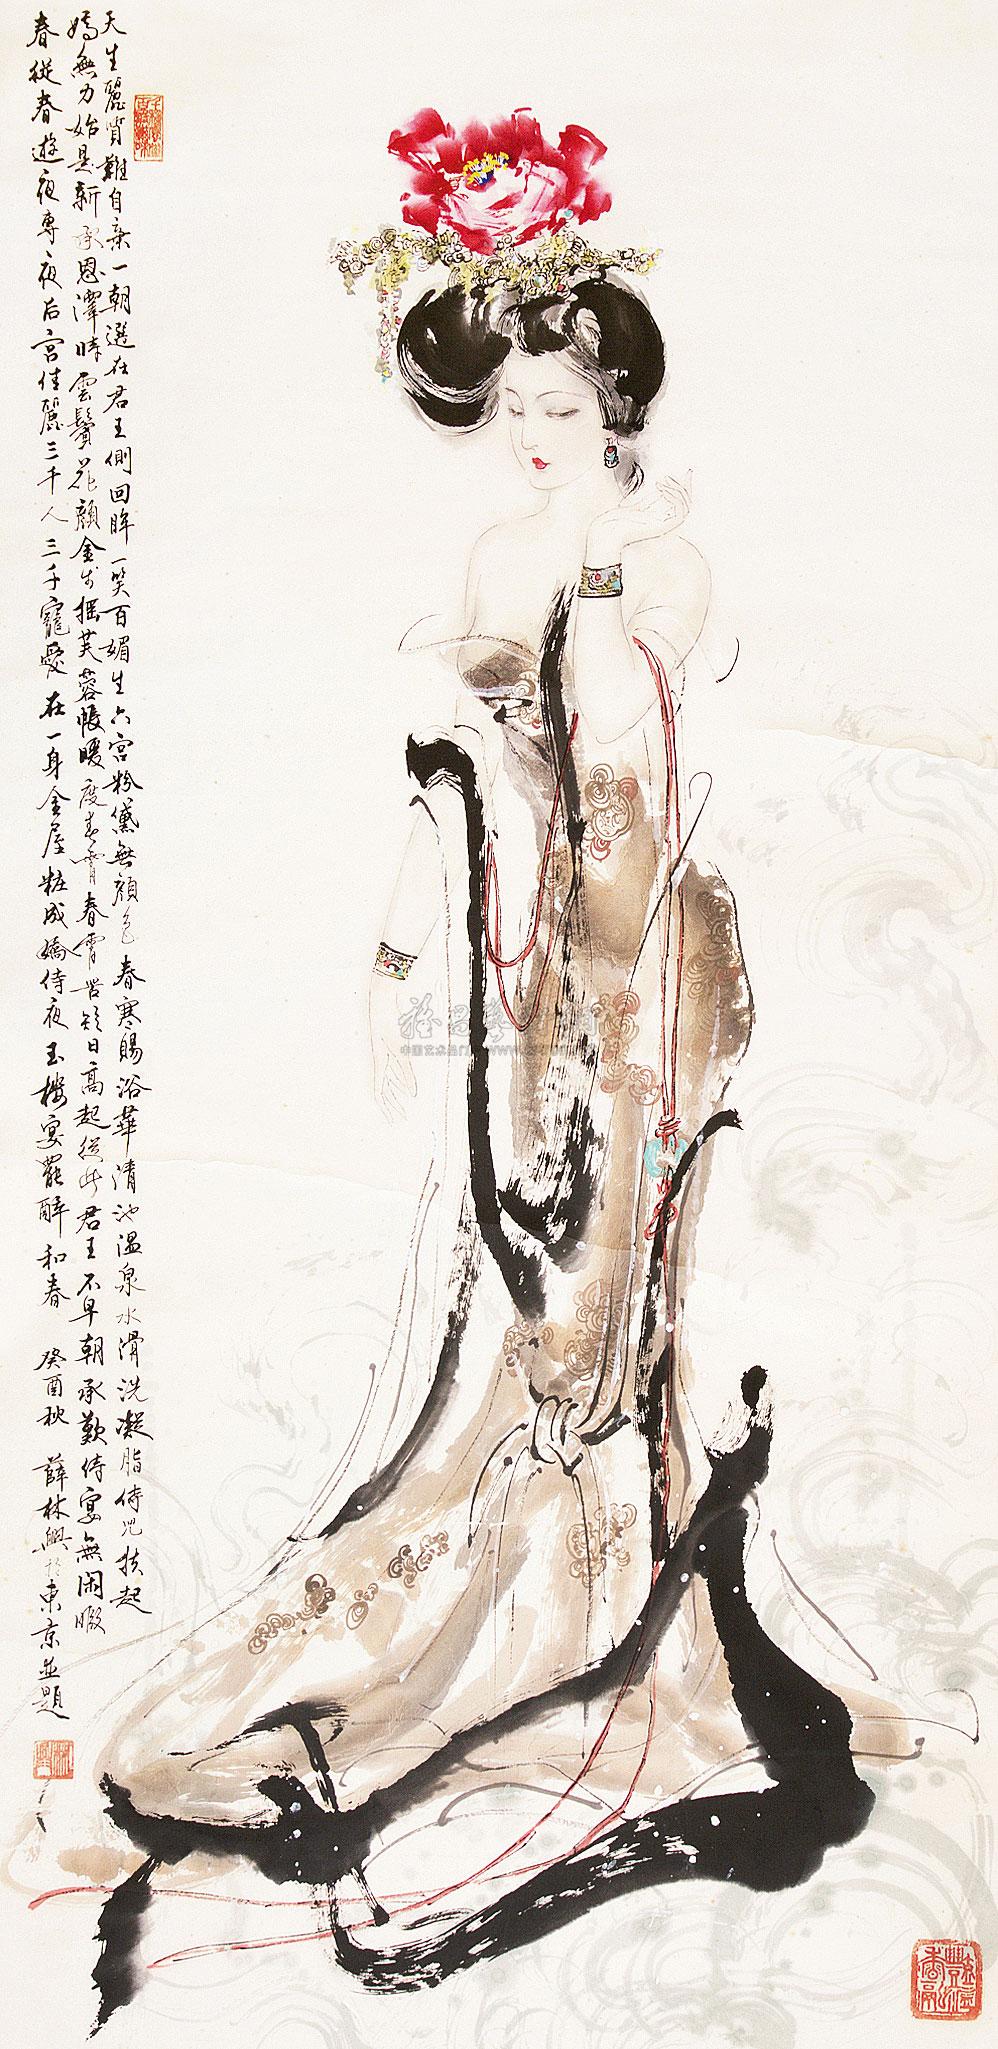 天生麗質難自棄一朝選在君王側回眸一笑百媚生六宮粉黛無顏色春寒賜浴華清池溫泉水滑洗凝脂侍兒扶起
嬌無力始是新承恩澤時雲鬢花顏金步搖芙蓉帳暖度春宵春宵苦短日高起從此君王不早朝承歡侍宴無閑暇
春從春遊夜專夜后宮佳麗三千人三千寵愛在一身金屋粧成嬌侍夜玉樓宴罷醉和春 癸酉秋 薛林興於東京並題